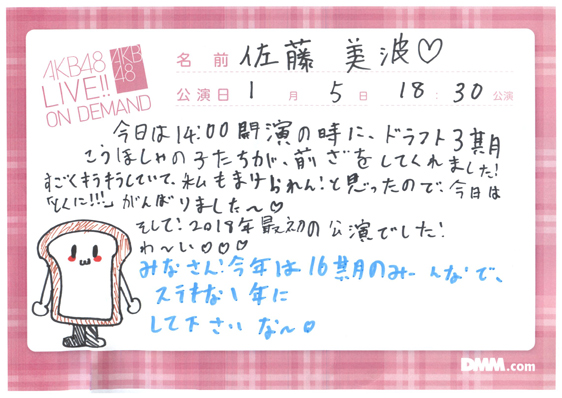 AKB48
LIVE!!
ON DEMAND
AKB
48
名前 佐藤 美波♡
公演日 1月 5日 18:30公演
今日は14:00開演の時に、ドラフト3期
こうほしゃの子たちが、前ざをしてくれました!
すごくキラキラしていて、私もまけられん!と思ったので、今日は
「とくに!!!」がんばりました〜♡
そして!2018年最初の公演でした!
わ〜い♡♡♡
みなさん!今年は16期のみーんなで、
ステキな1年に
して下さいな〜♡
DMM.com